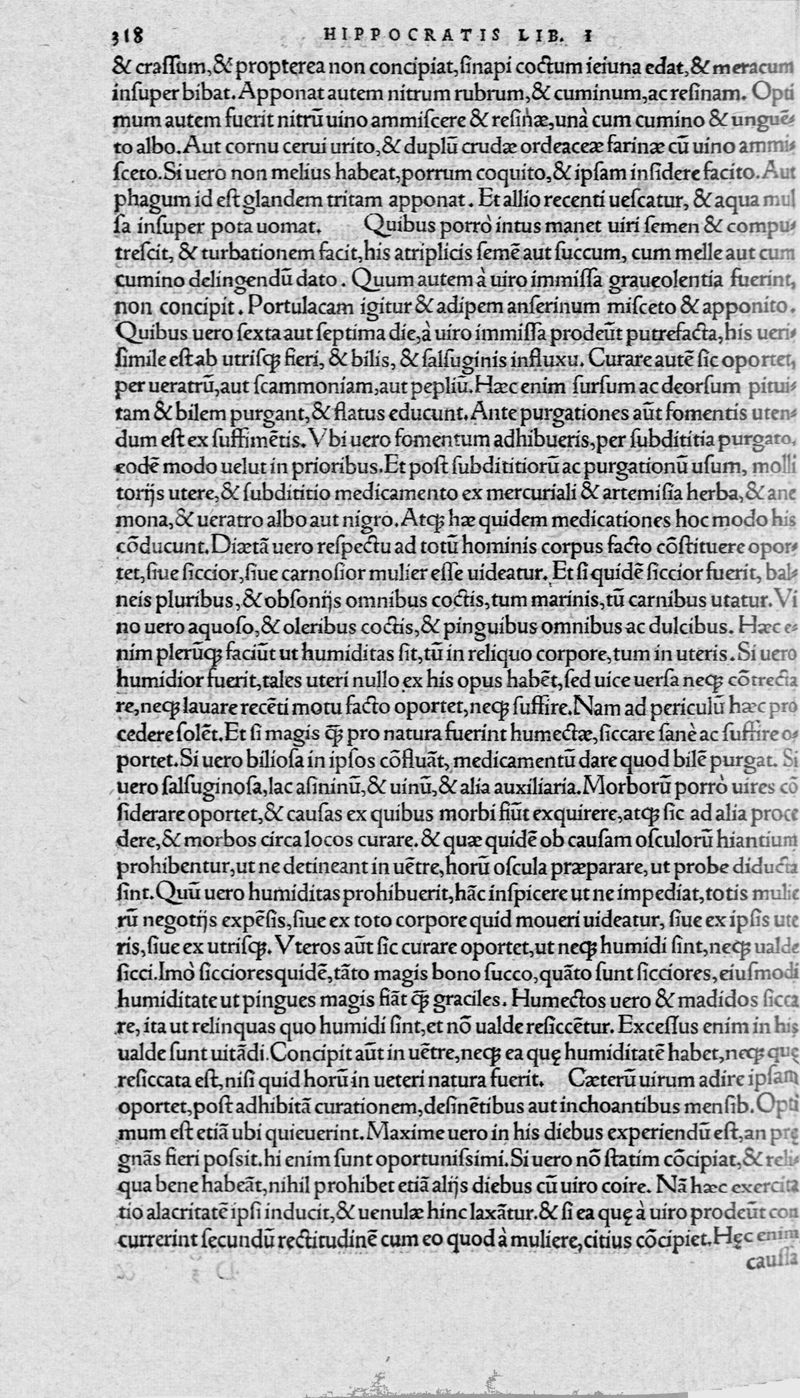 318 HIPPOCRATIS LIB. I
& craſſum,& propterea non concipiat,ſinapi coctum ieiuna edat,& meracum
inſuper bibat. Apponat autem nitrum rubrum,& cuminum,ac reſinam. Opti
mum autem fuerit nitrũ uino ammiſcere & reſinæ,unà cum cumino & unguẽ⸗
to albo. Aut cornu cerui urito,& duplũ crudæ ordeaceæ farinæ cũ uino ammi⸗
ſceto. Si uero non melius habeat,porrum coquito,& ipſam inſidere facito. Aut
phagum id eſt glandem tritam apponat. Et allio recenti ueſcatur, & aqua mul
ſa inſuper pota uomat. Quibus porrò intus manet uiri ſemen & compu⸗
treſcit, & turbationem facit,his atriplicis ſemẽ aut ſuccum, cum melle aut cum
cumino delingendũ dato. Quum autem à uiro immiſſa graueolentia fuerint,
non concipit. Portulacam igitur & adipem anſerinum miſceto & apponito.
Quibus uero ſexta aut ſeptima die,à uiro immiſſa prodeũt putrefacta,his ueri⸗
ſimile eſt ab utriſq; fieri, & bilis, & ſalſuginis influxu. Curare autẽ ſic oportet,
per ueratrũ,aut ſcammoniam,aut pepliũ. Hæc enim ſurſum ac deorſum pitui⸗
tam & bilem purgant,& flatus educunt. Ante purgationes aũt fomentis uten⸗
dum eſt ex ſuffimẽtis. Vbi uero fomentum adhibueris,per ſubdititia purgato,
eodẽ modo uelut in prioribus. Et poſt ſubdititiorũ ac purgationũ uſum, molli
torijs utere,& ſubdititio medicamento ex mercuriali & artemiſia herba,& ane
mona,& ueratro albo aut nigro. Atq; hæ quidem medicationes hoc modo his
cõducunt. Diætã uero reſpectu ad totũ hominis corpus facto cõſtituere opor⸗
tet,ſiue ſiccior,ſiue carnoſior mulier eſſe uideatur. Et ſi quidẽ ſiccior fuerit, bal⸗
neis pluribus,& obſonijs omnibus coctis,tum marinis,tũ carnibus utatur. Vi
no uero aquoſo,& oleribus coctis,& pinguibus omnibus ac dulcibus. Hæc e⸗
nim plerũq; faciũt ut humiditas ſit,tũ in reliquo corpore,tum in uteris. Si uero
humidior fuerit,tales uteri nullo ex his opus habẽt,ſed uice uerſa neq; cõtrecta
re,neq; lauare recẽti motu facto oportet,neq; ſuffire. Nam ad periculũ hæc pro
cedere ſolẽt. Et ſi magis q̃ pro natura fuerint humectæ,ſiccare ſanè ac ſuffire o⸗
portet. Si uero bilioſa in ipſos cõfluãt, medicamentũ dare quod bilẽ purgat. Si
uero ſalſuginoſa,lac aſininũ,& uinũ,& alia auxiliaria. Morborũ porrò uires cõ
ſiderare oportet,& cauſas ex quibus morbi fiũt exquirere,atq; ſic ad alia proce
dere,& morbos circa locos curare. & quæ quidẽ ob cauſam oſculorũ hiantium
prohibentur,ut ne detineant in uẽtre,horũ oſcula præparare,ut probe diducta
ſint. Quũ uero humiditas prohibuerit,hãc inſpicere ut ne impediat,totis mulie
rũ negotijs expẽſis,ſiue ex toto corpore quid moueri uideatur, ſiue ex ipſis ute
ris,ſiue ex utriſq;. Vteros aũt ſic curare oportet,ut neq; humidi ſint,neq; ualde
ſicci. Imò ſicciores quidẽ,tãto magis bono ſucco,quãto ſunt ſicciores,eiuſmodi
humiditate ut pingues magis fiãt q̃ graciles. Humectos uero & madidos ſicca
re, ita ut relinquas quo humidi ſint,et nõ ualde reſiccẽtur. Exceſſus enim in his
ualde ſunt uitãdi. Concipit aũt in uẽtre,neq; ea quę humiditatẽ habet,neq; quę
reſiccata eſt,niſi quid horũ in ueteri natura fuerit. Cæterũ uirum adire ipſam
oportet,poſt adhibitã curationem,deſinẽtibus aut inchoantibus menſib. Opti
mum eſt etiã ubi quieuerint. Maxime uero in his diebus experiendũ eſt,an prę
gnãs fieri poſsit. hi enim ſunt oportuniſsimi. Si uero nõ ſtatim cõcipiat,& reli⸗
qua bene habeãt,nihil prohibet etiã alijs diebus cũ uiro coire. Nã hæc exercita
tio alacritatẽ ipſi inducit,& uenulæ hinc laxãtur. & ſi ea quę à uiro prodeũt con
currerint ſecundũ rectitudinẽ cum eo quod à muliere,citius cõcipiet. Hęc enim
cauſſa